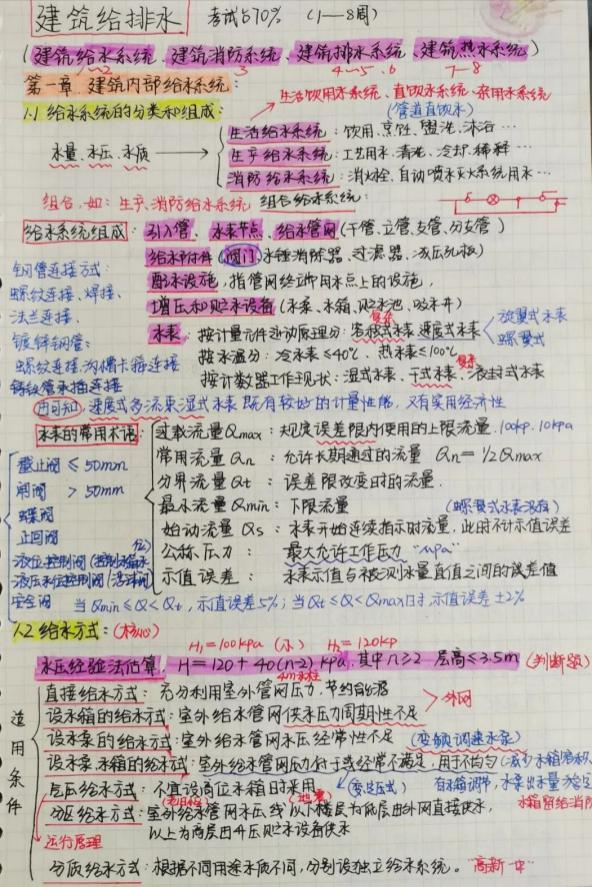 建筑给排水 考试占70% (1—8周)
(建筑给水系统、建筑消防系统、建筑排水系统、建筑热水系统)
1~2 3 4-5、6 7-8
第一章 建筑内部给水系统:
生活饮用水系统、直饮水系统、杂用水系统
(管道直饮水)
1.1 给水系统的分类和组成:
水量、水压、水质
生活给水系统:饮用、烹饪、盥洗、沐浴…
生产给水系统:工艺用水、清洗、冷却、稀释…
消防给水系统:消火栓、自动喷水灭火系统用水…
组合,如:生产、消防给水系统 组合给水系统:
给水系统组成: 引入管、水表节点、给水管网(干管、立管、支管、分支管)
给水附件(阀门、水锤消除器、过滤器、减压孔板)
配水设施,指管网终端用水点上的设施,
增压和贮水设备(水泵、水箱、贮水池、吸水井)
钢管连接方式:
螺纹连接、焊接、
法兰连接、
镀锌钢管:
螺纹连接、沟槽卡箍连接
铸铁管承插连接
水表: 按计量元件运动原理分:容积式水表、速度式水表
旋翼式水表
螺翼式
按水温分:冷水表≤40℃、热水表≤100℃
按计数器工作现状:湿式水表、干式水表、液封式水表
可知,速度式多流束湿式水表既有较好的计量性能,又有实用经济性
水表的常用术语:
过载流量Qmax:规定误差限内使用的上限流量.100kp.10kpa
常用流量Qn:允许长期通过的流量 Qn=1/2Qmax
分界流量Qt:误差限改变时的流量.
最小流量Qmin:下限流量 (螺翼式水表没有)
始动流量Qs:水表开始连续指示时流量,此时不计示值误差
公称压力: 最大允许工作压力"mpa"
示值误差: 水表示值与被测水量真值之间的误差值
截止阀 ≤50mm
闸阀 >50mm
蝶阀
止回阀
安全阀
当Qmin≤Q<Qt,示值误差5%;当Qt≤Q<Qmax时,示值误差±2%
1.2 给水方式:(核心)
H₁=100kpa (小) H₂=120kp
水压经验法估算,H=120+40(n-2)kpa,其中n≥2 层高≤3.5m (判断题)
4m水柱
适用条件
直接给水方式:充分利用室外管网压力,节约能源
设水箱的给水方式:室外给水管网供水压力周期性不足
外网
设水泵的给水方式:室外给水管网水压经常性不足 (变频调速水泵)
设水泵、水箱的给水方式:室外给水管网压力低于或经常不满足,用于不均匀
气压给水方式:不宜设高位水箱时采用 (变压式)
有水箱调节,水泵出水量稳定
分区给水方式:室外给水管网水压线以下楼层为低层由外网直接供水,
以上为高层由升压贮水设备供水
运行原理
分质给水方式:根据不同用途水质不同,分别设独立给水系统。